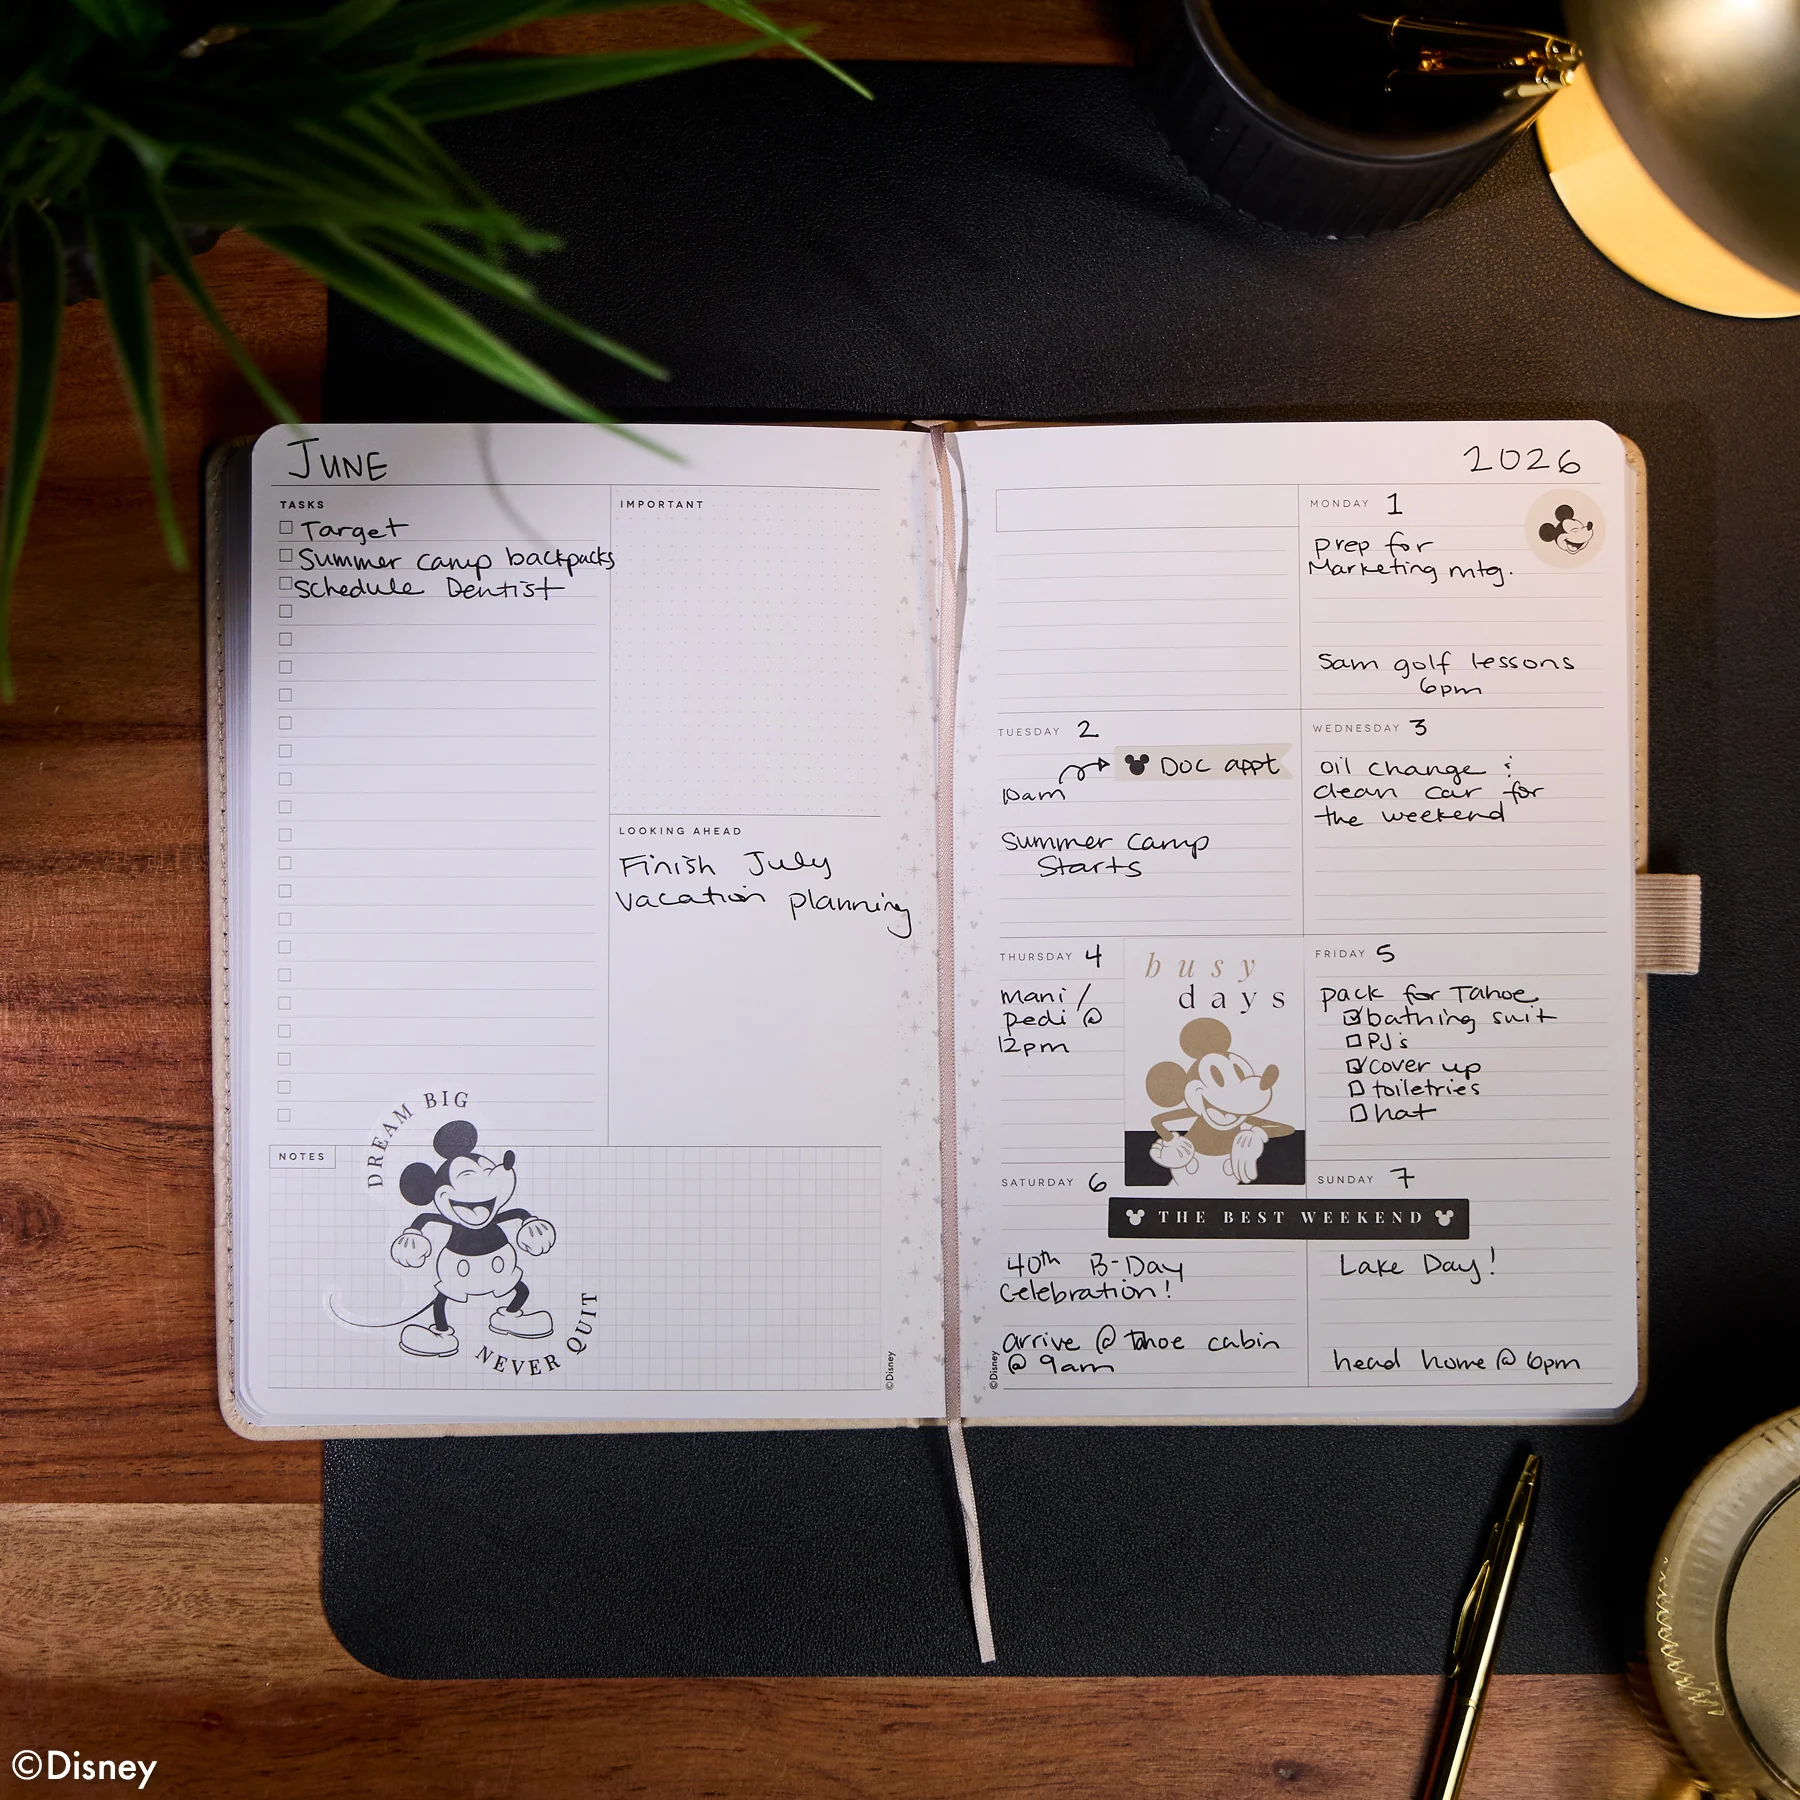 JUNE
TASKS
Target
Summer camp backpacks
Schedule Dentist
IMPORTANT
LOOKING AHEAD
Finish July
vacation planning
NOTES
DREAM BIG
NEVER QUIT
©Disney
2026
MONDAY 1
prep for
Marketing mtg.
Sam golf lessons
6pm
TUESDAY 2
Doc appt
10am
Summer camp
Starts
WEDNESDAY 3
oil change &
clean car for
the weekend
THURSDAY 4
mani/
pedi @
12pm
busy
days
FRIDAY 5
pack for Tahoe
bathing suit
PJ's
cover up
toiletries
hat
SATURDAY 6
SUNDAY 7
THE BEST WEEKEND
40th B-Day
Celebration!
arrive @ Tahoe cabin
@ 9am
Lake Day!
head home @ 6pm
©Disney
©Disney